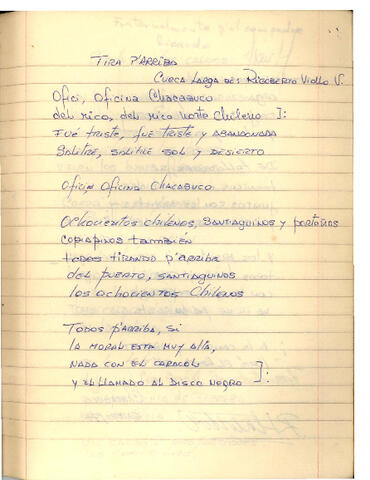 TIRA P'ARRIBA
CUECA LARGA DE: RIGOBERTO
OFICI, OFICINA CHACABUCO
DEL RICO, DEL RICO NORTE CHILENO ]:
FUÉ TRISTE, FUE TRISTE Y ABANDONADA
SALITRE, SALITRE SOL Y DESIERTO
OFICIA OFICINA CHACABUCO
OCHOCIENTOS CHILENOS, SANTIAGUINOS Y PORTEÑOS
COPIAPINOS TAMBIÉN
TODOS TIRANDO P'ARRIBA
DEL PUERTO, SANTIAGUINOS
LOS OCHOCIENTOS CHILENOS
TODOS P'ARRIBA, SI
LA MORAL ESTA MUY ALTA,
NADA CON EL CARACOL
Y EL LLAMADO AL DISCO NEGRO ]: